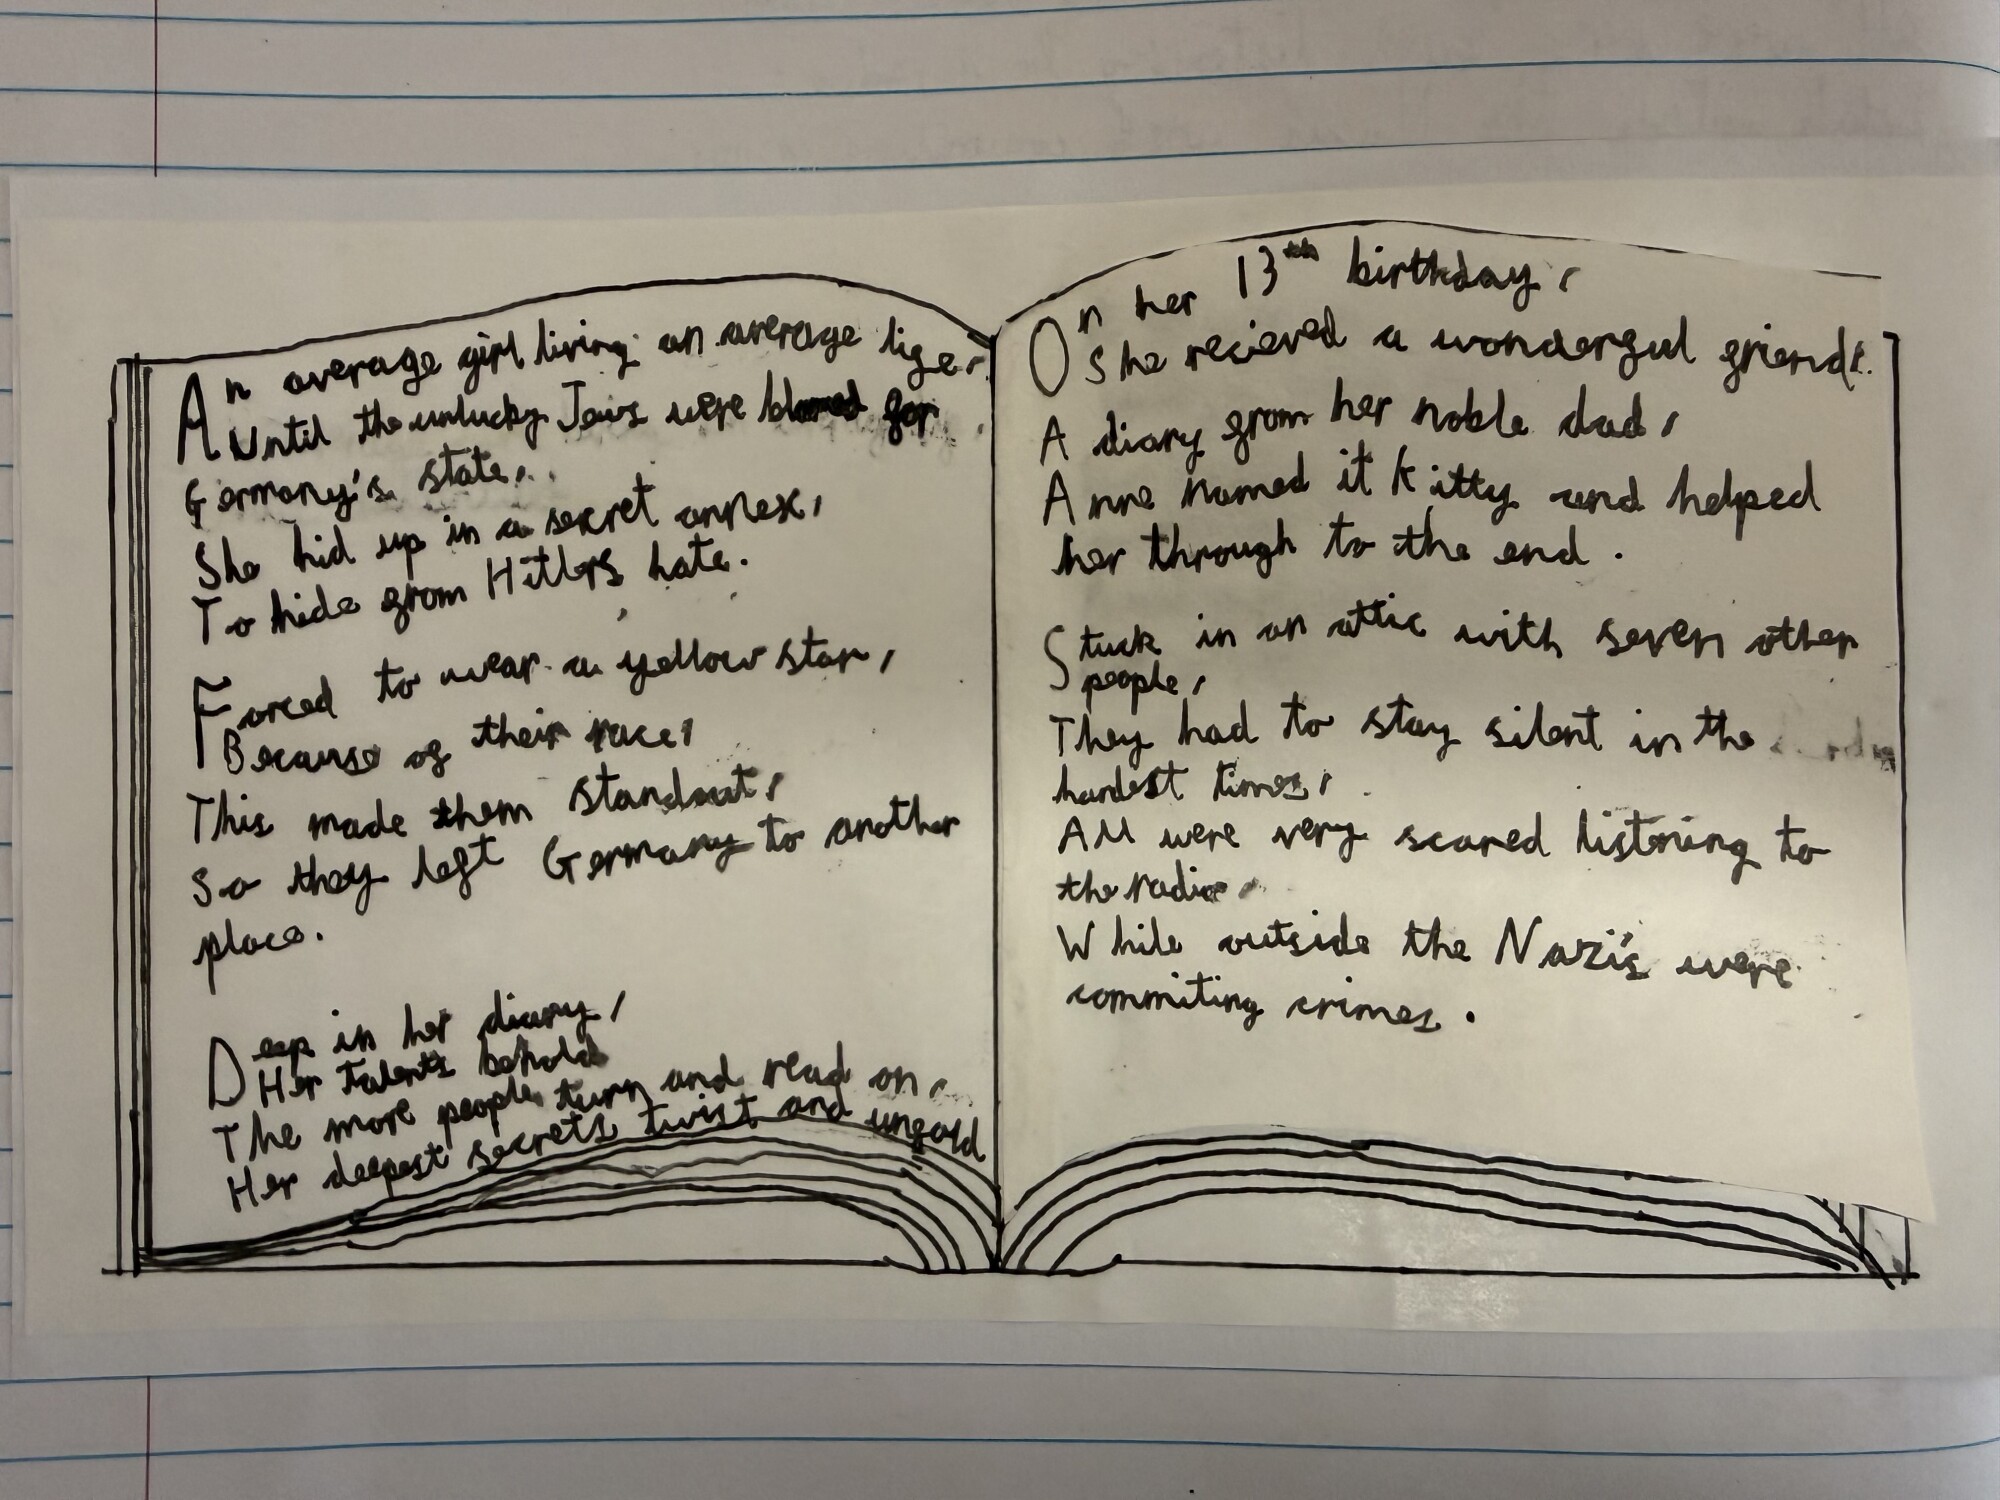 An average girl living an average life,
Until the unlucky Jews were blamed for
Germany's state,
She hid up in a secret annex,
To hide from Hitlers hate.
Forced to wear a yellow star,
Because of their race,
This made them standout,
So they left Germany to another
place.
Deep in her diary,
Her talents behold
The more people turn and read on,
Her deepest secrets twist and unfold
On her 13th birthday,
She recieved a wonderful friend.
A diary from her noble dad,
Anne named it Kitty and helped
her through to the end.
Stuck in an attic with seven other
people,
They had to stay silent in the
hardest times,
All were very scared listning to
the radio
While outside the Nazi's were
commiting crimes.